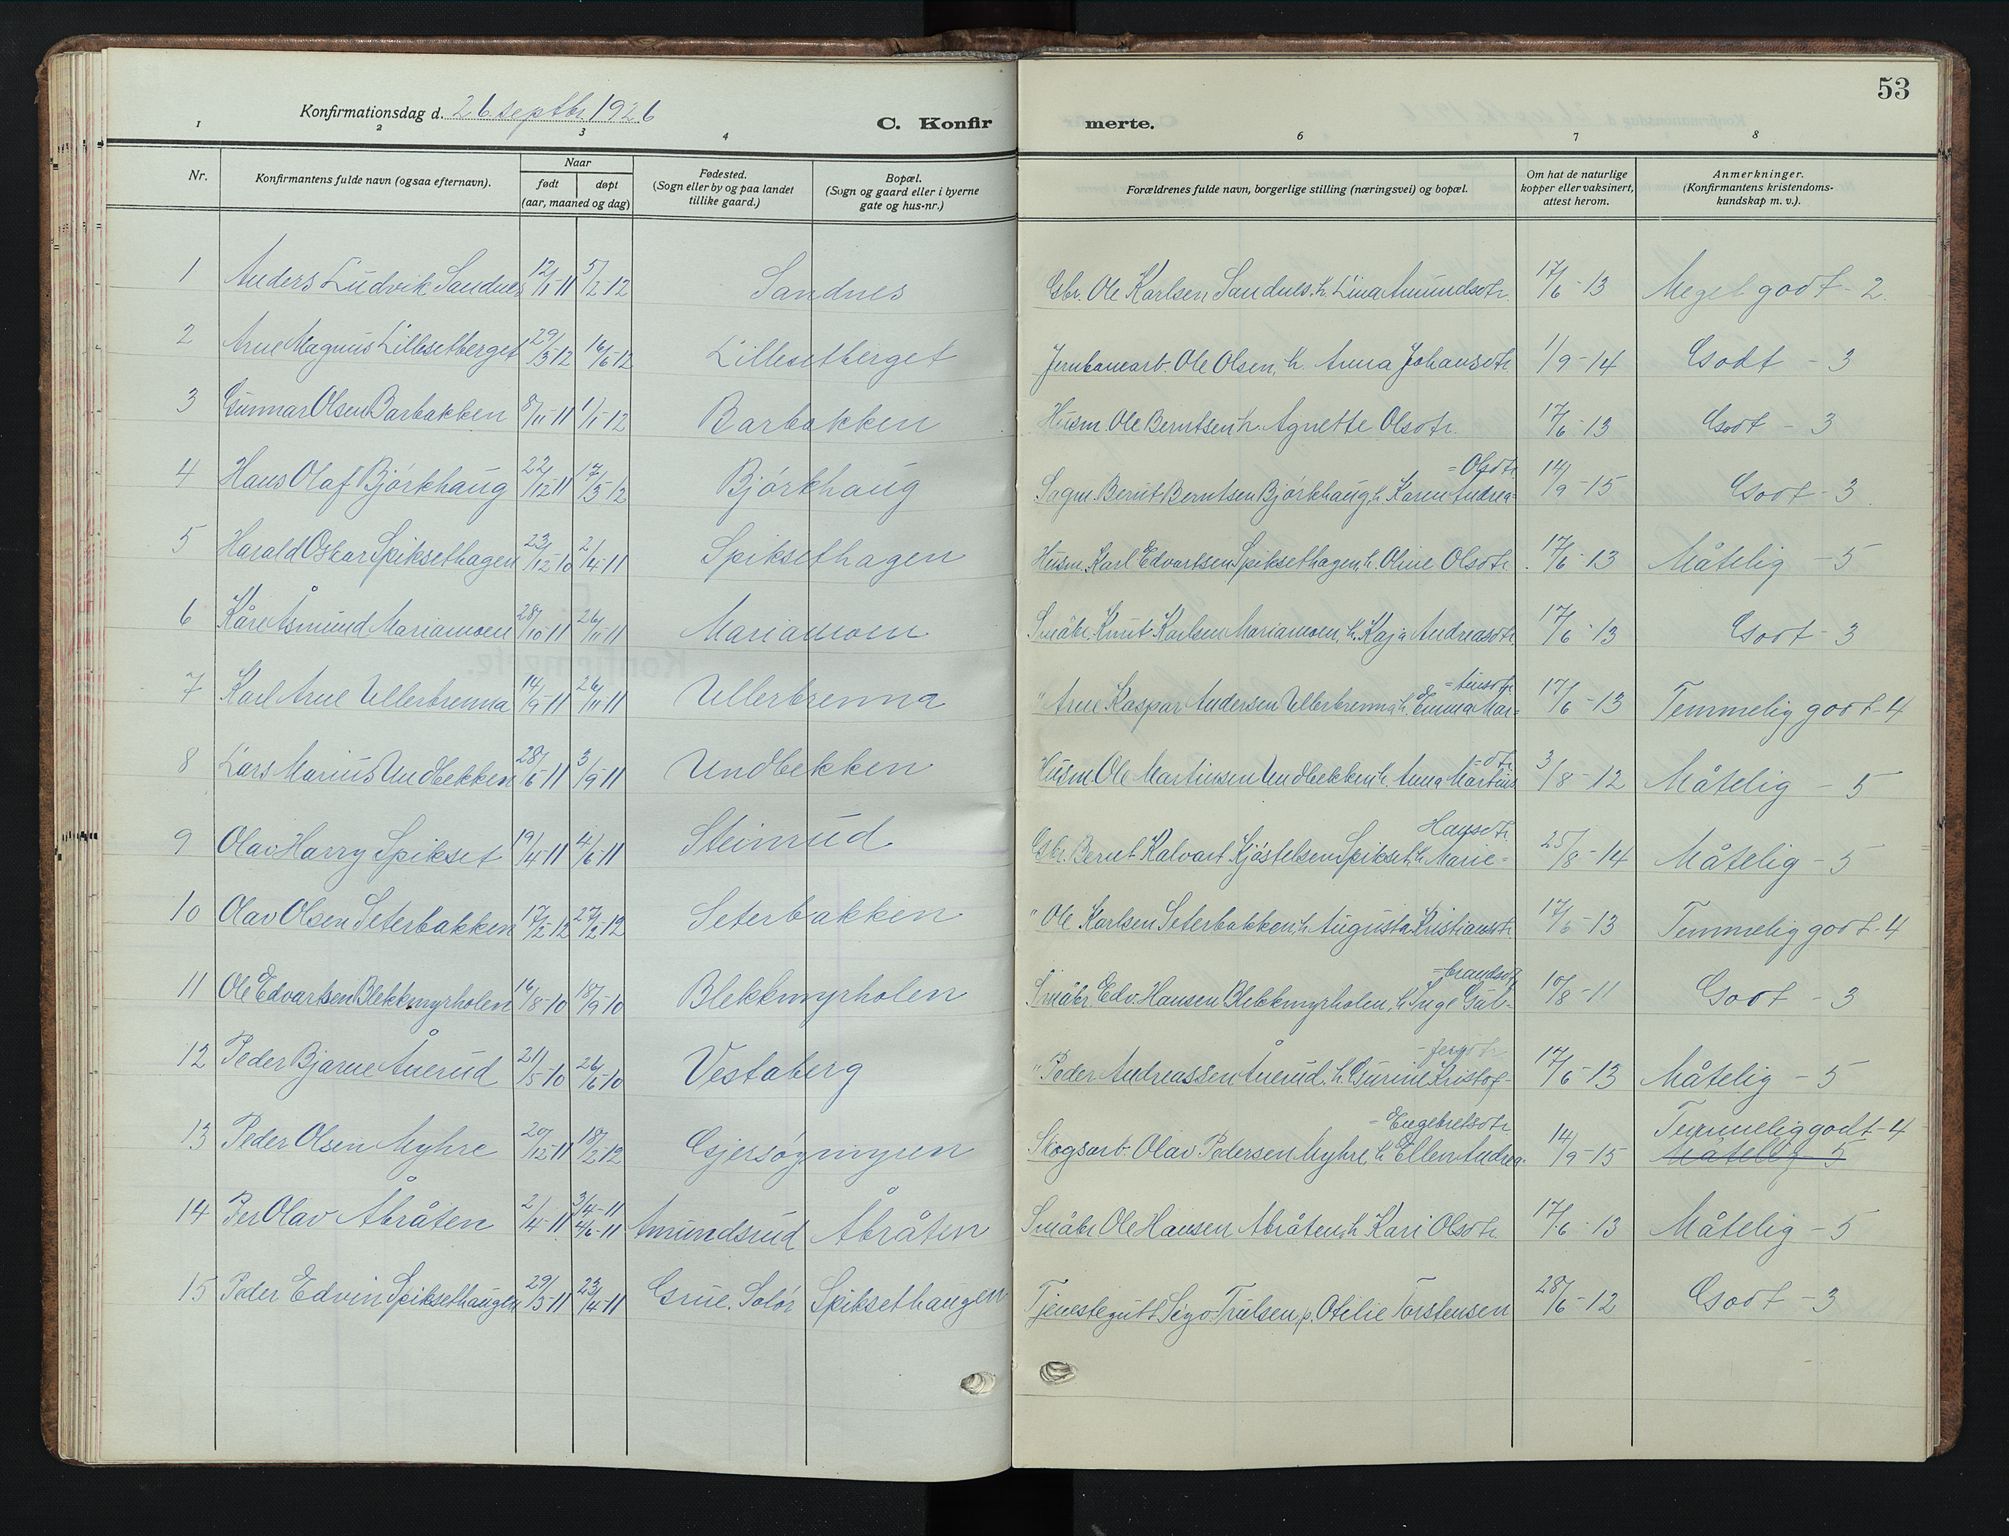 53
Konfirmationsdag d. 26 septbr. 1926
C. Konfir merte.
1 2 3 4 6 7 8
Nr. Konfirmantens fulde navn (ogsaa efternavn). Naar født døpt (aar, maaned og dag) Fødested. (Sogn eller by og paa landet tillike gaard.) Bopæl. (Sogn og gaard eller i byerne gate og hus-nr.) Forældrenes fulde navn, borgerlige stilling (næringsvei) og bopæl. Om hat de naturlige kopper eller vaksinert, attest herom. Anmerkninger. (Konfirmantens kristendoms- kundskap m. v.).
1 Anders Ludvik Sandnes 12/11-11 5/2-12 Sandnes Gbr. Ole Karlsen Sandnes, h. Lina Amundsdtr. 17/6-13 Meget godt - 2.
2 Arne Magnus Lillesetberget 29/3-12 16/6-12 Lillesetberget Jernbanearb. Ole Olsen, h. Anna Johansdtr. 1/9-14 Godt - 3
3 Gunnar Olsen Barbakken 8/11-11 1/1-12 Barbakken Husm. Ole Berntsen, h. Agnette Olsdtr. 17/6-13 Godt - 3
4 Hans Olaf Bjørkhaug 22/12-11 17/3-12 Bjørkhaug Sagm. Bernt Berntsen Bjørkhaug, h. Karen Andrea = Olsdtr. 14/9-15 Godt - 3
5 Harald Oskar Spiksethagen 23/12-10 2/4-11 Spiksethagen Husm. Karl Edvartsen Spiksethagen, h. Oline Olsdtr. 17/6-13 Måtelig - 5
6 Kåre Åsmund Mariamoen 28/10-11 26/11-11 Mariamoen Småbr. Knut Karlsen Mariamoen, h. Kaja Andreasdtr. 17/6-13 Godt - 3
7 Karl Arne Ullerbrenna 14/9-11 26/11-11 Ullerbrenna " Arne Kaspar Andersen Ullerbrenna, h. Emma Mar- = tinsdtr. 17/6-13 Temmelig godt - 4
8 Lars Marius Undbekken 28/6-11 3/9-11 Undbekken Husm. Ole Martinsen Undbekken, h. Anna Martins - dtr. 3/8-12 Måtelig - 5
9 Olav Harry Spikset 19/4-11 4/6-11 Steinrud Gbr. Bernt Kalvart Kjøstelsen Spikset, h. Marie = Hansdtr. 25/8-14 Måtelig - 5
10 Olav Olsen Seterbakken 17/2-12 27/2-12 Seterbakken " Ole Karlsen Seterbakken, h. Augusta Kristiansdtr. 17/6-13 Temmelig godt - 4
11 Ole Edvartsen Blekkmyrholen 16/8-10 18/9-10 Blekkmyrholen Småbr. Edv. Hansen Blekkmyrholen, h. Inge Gul- - brandsdtr. 10/8-11 Godt - 3
12 Peder Bjarne Ånerud 21/5-10 26/6-10 Vestaberg " Peder Andreassen Ånerud, h. Gurine Kristof- 17/6-13 Måtelig - 5
13 Peder Olsen Myhre 20/12-11 18/2-12 Gjersøgmyren Skogsarb. Olav Pedersen Myhre, h. Ellen Andrea - Engebretsdtr. 14/9-15 Temmelig godt - 4 Måtelig 5
14 Per Olav Åbråten 2/4-11 3/4-11 4/6-11 Amundsrud Åbråten Småbr. Ole Hansen Åbråten, h. Kari Olsdtr. 17/6-13 Måtelig - 5
15 Peder Edvin Spiksethaugen 29/3-11 23/4-11 Grue, Solør Spiksethaugen Tjenestegutt Sigv. Trulsen, p. Otilie Torstensen 28/6-12 Godt - 3